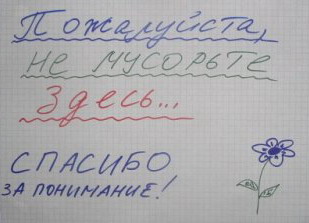 Пожалуйста,
не мусорьте
здесь...
СПАСИБО
ЗА ПОНИМАНИЕ!